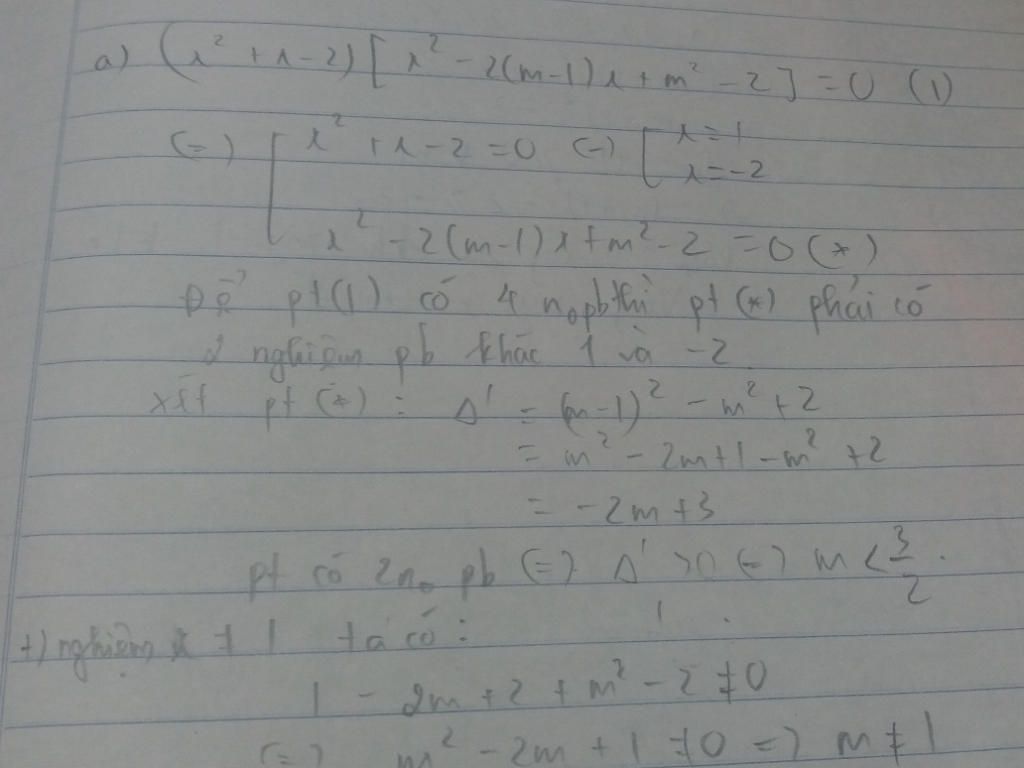 a) (x² + x - 2) [x² - 2(m-1)x + m² - 2] = 0 (1)
(=) [ x² + x - 2 = 0 (=) [ x = 1
x = -2
x² - 2(m-1)x + m² - 2 = 0 (*)
Để pt(1) có 4 n₀ pb thì pt (*) phải có
2 nghiệm pb khác 1 và -2
xét pt (*) : Δ' = (m-1)² - m² + 2
= m² - 2m + 1 - m² + 2
= -2m + 3
pt có 2n₀ pb (=) Δ' > 0 (=) m < 3/2 .
+) nghiệm x ≠ 1 ta có :
1 - 2m + 2 + m² - 2 ≠ 0
(=) m² - 2m + 1 ≠ 0 => m ≠ 1